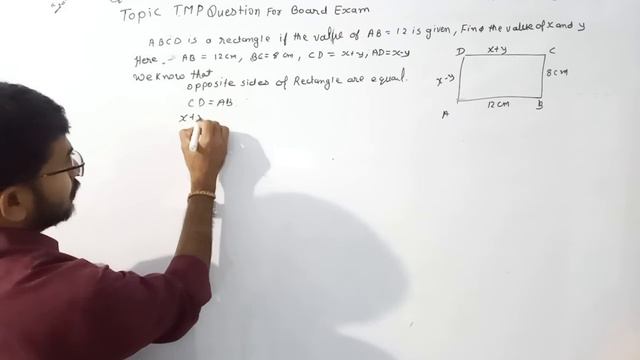 Topic TMP Question For Board Exam
ABCD is a rectangle if the value of AB = 12 is given, Find the value of x and y
Here - AB = 12cm, BC = 8cm, CD = x+y, AD = x-y
We know that
opposite sides of Rectangle are equal.
CD = AB
x+y
D x+y C
x-y 8cm
12cm B
A